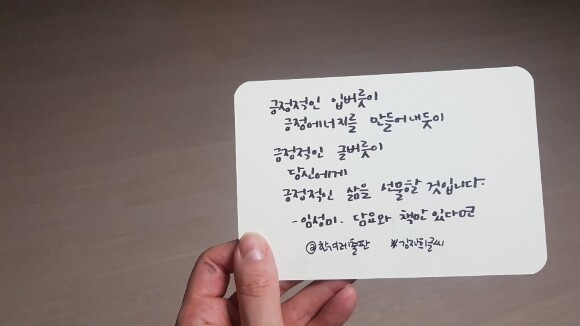 긍정적인 입버릇이
긍정에너지를 만들어내듯이
긍정적인 글버릇이
당신에게
긍정적인 삶을 선물할 것입니다.
- 임성미. 담요와 책만 있다면
@한겨레출판 #감자튀글씨